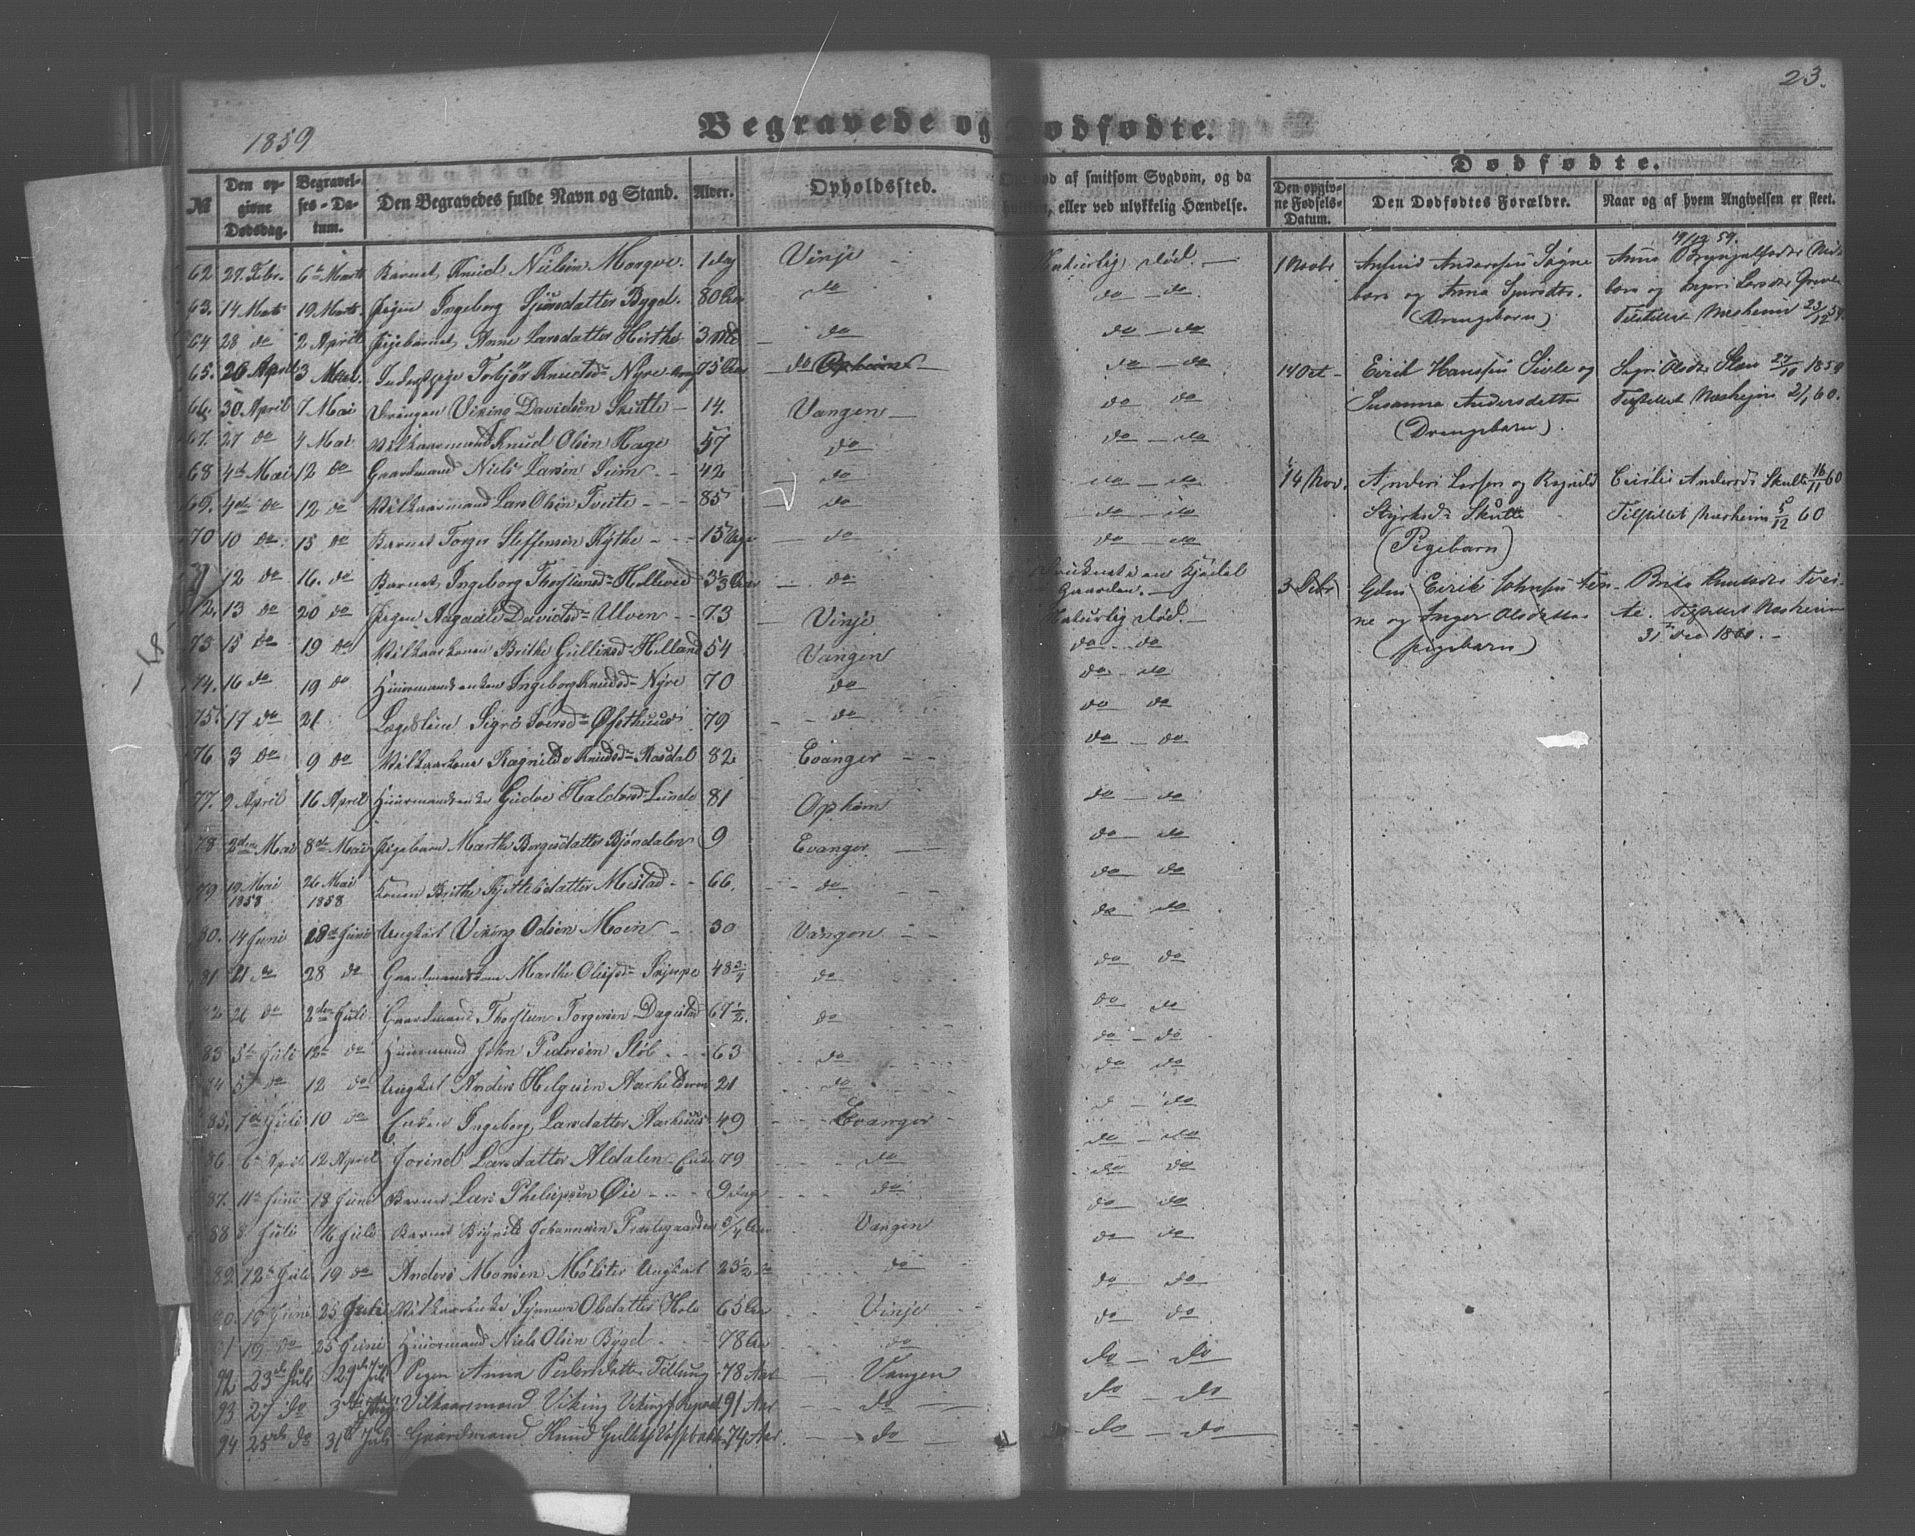 23.
1859
Begravede og Dødfødte.
Dødfødte.
№ | Den opgivne Dødsdag. | Begravelses-Datum. | Den Begravedes fulde Navn og Stand. | Alder. | Opholdssted. | død af smitsom Sygdom, og da hvilken, eller ved ulykkelig Hændelse. | Den opgivne Fødsels-Datum. | Den Dødfødtes Forældre. | Naar og af hvem Angivelsen er skeet.
62. 27. Febr. 6te Marts Barnet Knud Nielsen Morgve. 1 dag Vinje Naturlig død.
63. 14 Marts 19 Marts Pigen Ingeborg Sjursdatter Bygd. 80 Aar do do do
64 28 do 2 April Pigebarnet Anne Larsdatter Hirthe 3 Mdr do do do
65. 26 April 3 Mai Inderstpige Torbjør Knutsd. Nyre 75 Aar do do do
66. 30. April 7 Mai Drengen Viking Davidsen Skutle 14. Vangen do do
67. 27 do 4 Mai Vilkaarmand Knud Olsen Hage 57 do do do
68 4de Mai 12 do Gaardmand Niels Larsen Seim 42 do do do
69. 4de do 12 do Vilkaarmand Lars Olsen Tveite 85 do do do
70 10 do 15 do Barnet Torger Steffensen Kythe 15 Uger do do do
71 12 do 16. do Barnet Ingeborg Thorsteinsd. Hellevd 3 1/3 Aar do Druknede en Kjedel Gaarden.
72. 13 do 20 do Pigen Aagaate Davidsd. Ulven 73 Vinje Naturlig død.
73 15 do 19 do Vilkaarkonen Brithe Gulliksd. Helland 54 Vangen do do
74. 16 do 19 do Huusmandsenken Ingeborg Knudsd. Nyre 70 do do do
75. 17 do 21 Lægdslem Sigri Iversd. Øfsthuus 79 do do do
76 3 do 9 do Vilkaarkone Ragnilde Knudsd. Rasdal 82 Evanger do do
77. 9 April 16 April Huusmandsenke Gudve Haldorsd. Lunde 81 Opheim do do
78. 2den Mai 8de Mai Pigebarn Marthe Borgesdatter Bjøndalen 9 Evanger do do
79 19 Mai 1858 26 Mai 1858 Konen Brithe Kjettelsdatter Mestad 66. do do do
80. 14 Juni 18de Juni Ungkarl Viking Odsen Moen 30 Vangen do do
81 21 do 28 do Gaardmandskone Marthe Olufsd. Skjerpe 48 3/4 do do do
82 26 do 2den Juli Gaardmand Thorsteen Torgersen Dagestad 67 1/2 do do do
83 5te Juli 12te do Huusmand John Pedersen Støb 63 do do do
84 5 do 12 do Ungkarl Anders Helgesen Aarhelderen 21 do do do
85. 7de Juli 10 do Enken Ingeborg Larsdatter Aarhuus 49 Evanger do
86 6te April 12 April Jorind Larsdatter Aldalen Enke 79 do do do
87. 11te Juni 18 Juni Barnet Lars Philipsen Øie 9 dage do do do
88 8 Juli 16 Juli Barnet Bognild Johannesen Præstegaarden 3/4 Aar Vangen do do
89. 12te Juli 19 do Anders Monsen Mølster Ungkarl 23 1/2 do do do do
90. 19 Juni 25 Juli Vilkaarsenke Synneva Olsdatter Hole 65 Aar Vinje do do
91 19 do 25 Juni Huusmand Niels Olsen Bygd 78 Aar do do do
92 23de Juli 29de Juli Pigen Anna Pedersdatter Tillung 78 Aar Vangen do do
93 27 do 3die Aug. Vilkaarsmand Viking Vikings. 91 Aar do do do
94 25de do 31te Juli Gaardmand Knud Gulles. 74 Aar do do do
1 Novbr Anfind Andersen Søgnebære og Anna Sjursdtr. (Drengebarn).
19/12 59. Anna Brynjulfsdtr og Ingeri Larsdtr
Tilstillet Næsheim 23/12 59.
14 Oct Eirik Hanssen Sivle og Susanna Andersdatter (Drengebarn).
Sigri Olsdtr 27/10 1859
Tilstillet Næsheim 2/1 60.
14 Nov. Anders Larsen og Ragnild Styrksdr Skutle (Pigebarn)
Cicilie Andersdr Skutle 16/11 60
Tilstillet Næsheim 5/12 60
3 Febr Gdm Eirik Johnsen Tenne og Inger Olsdatter (pigebarn)
Brita Knutsdtr Tveite. Tilstillet Næsheim
31 Dec 1860.